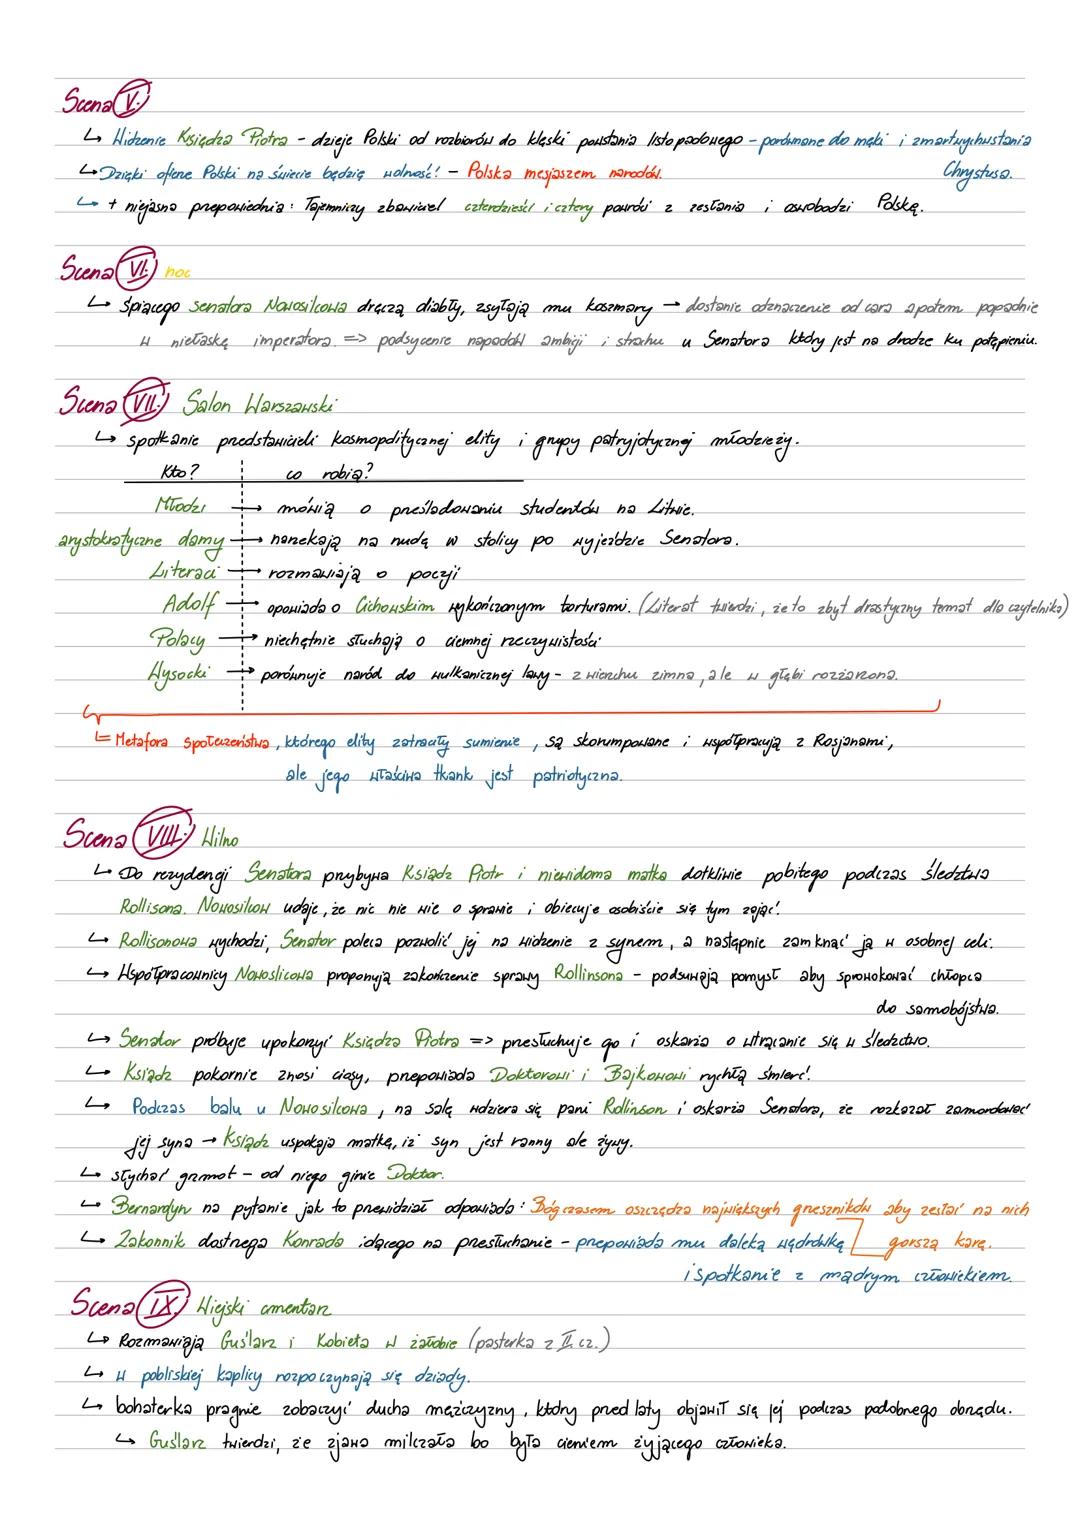 Scena V.
↳ Widzenie Księdza Piotra – dzieje Polski od rozbiorów do klęski powstania listopadowego – porównane do męki i zmartwychwstania
Chrystusa.
↳ Dzięki ofierze Polski na świecie będzię wolność! – Polska mesjaszem narodów.
↳ + niejasna przepowiednia: Tajemniczy zbawiciel czterdzieści i cztery powróci z zesłania i oswobodzi Polskę.
Scena VI. noc
↳ Śpiącego senatora Nowosilcowa dręczą diabły, zsyłają mu koszmary → dostanie odznaczenie od cara a potem popadnie
w niełaskę imperatora. => podsycenie napadów ambicji i strachu u Senatora który jest na drodze ku potępieniu.
Scena VII. Salon Warszawski
↳ spotkanie przedstawicieli kosmopolitycznej elity i grupy patryjotycznej młodzieży.
Kto? co robią?
Młodzi → mówią o prześladowaniu studentów na Litwie.
arystokratyczne damy → narzekają na nudę w stolicy po wyjeździe Senatora.
Literaci → rozmawiają o poezji
Adolf → opowiada o Cichowskim wykończonym torturami. (Literat twierdzi, że to zbyt drastyczny temat dla czytelnika)
Polacy → niechętnie słuchają o ciemnej rzeczywistości
Wysocki → porównuje naród do wulkanicznej lawy – z wierzchu zimna, ale w głębi rozżarzona.
↳ = Metafora społeczeństwa, którego elity zatraciły sumienie, są skorumpowane i współpracują z Rosjanami,
ale jego właściwa tkank jest patriotyczna.
Scena VIII. Wilno
↳ Do rezydencji Senatora przybywa Ksiądz Piotr i niewidoma matka dotkliwie pobitego podczas śledztwa
Rollisona. Nowosilcow udaje, że nic nie wie o sprawie i obiecuje osobiście się tym zająć.
↳ Rollisonowa wychodzi, Senator poleca pozwolić jej na widzenie z synem, a następnie zamknąć ją w osobnej celi.
↳ Współpracownicy Nowoslicowa proponują zakończenie sprawy Rollinsona – podsuwają pomysł aby sprowokować chłopca
do samobójstwa.
↳ Senator próbuje upokorzyć Księdza Piotra => przesłuchuje go i oskarża o wtrącanie się w śledztwo.
↳ Ksiądz pokornie znosi ciosy, przepowiada Doktorowi i Bajkowowi rychłą śmierć.
↳ Podczas balu u Nowosilcowa, na salę wdziera się pani Rollinson i oskarża Senatora, że rozkazał zamordować
jej syna → Ksiądz uspokaja matkę, iż syn jest ranny ale żywy.
↳ słychać grzmot – od niego ginie Doktor.
↳ Bernardyn na pytanie jak to przewidział odpowiada: Bóg czasem oszczędza największych grzeszników aby zesłać na nich
↳ Zakonnik dostrzega Konrada idącego na przesłuchanie – przepowiada mu daleką wędrówkę gorszą karę.
i spotkanie z mądrym człowiekiem.
Scena IX. Wiejski cmentarz
↳ Rozmawiają Guślarz i Kobieta w żałobie (pasterka z II cz.)
↳ w pobliskiej kaplicy rozpoczynają się dziady.
↳ bohaterka pragnie zobaczyć ducha mężczyzny, który przed laty objawił się jej podczas podobnego obrzędu.
↳ Guślarz twierdzi, że zjawa milczała bo była cieniem żyjącego człowieka.